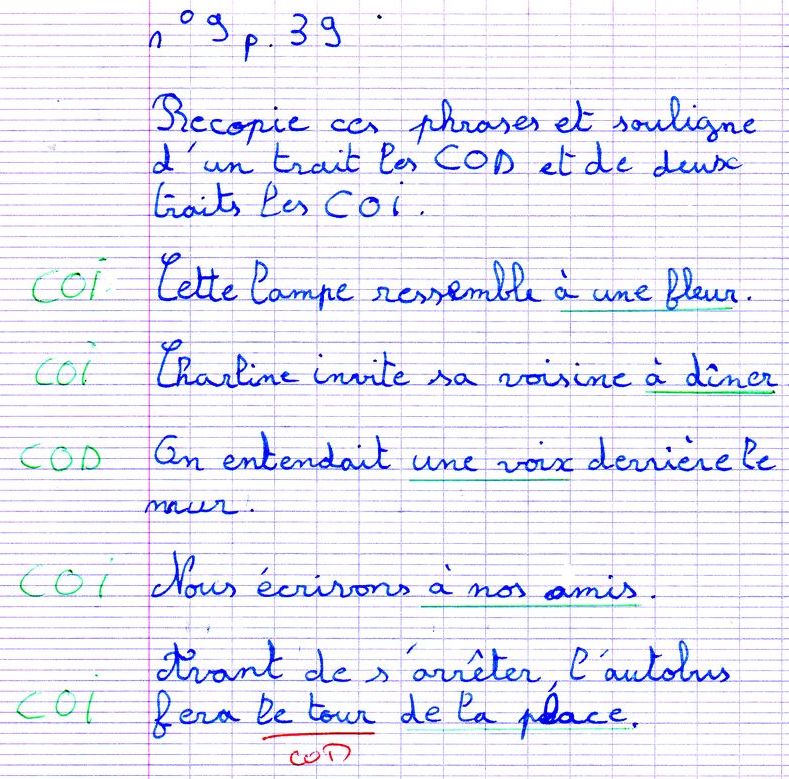 n° 9 p. 39
Recopie ces phrases et souligne
d'un trait les COD et de deux
traits les COi.
COi Cette lampe ressemble à une fleur.
COi Charline invite sa voisine à dîner
COD On entendait une voix derrière le
mur.
COi Nous écrivons à nos amis.
Avant de s'arrêter, l'autobus
COi fera le tour de la place.
COD